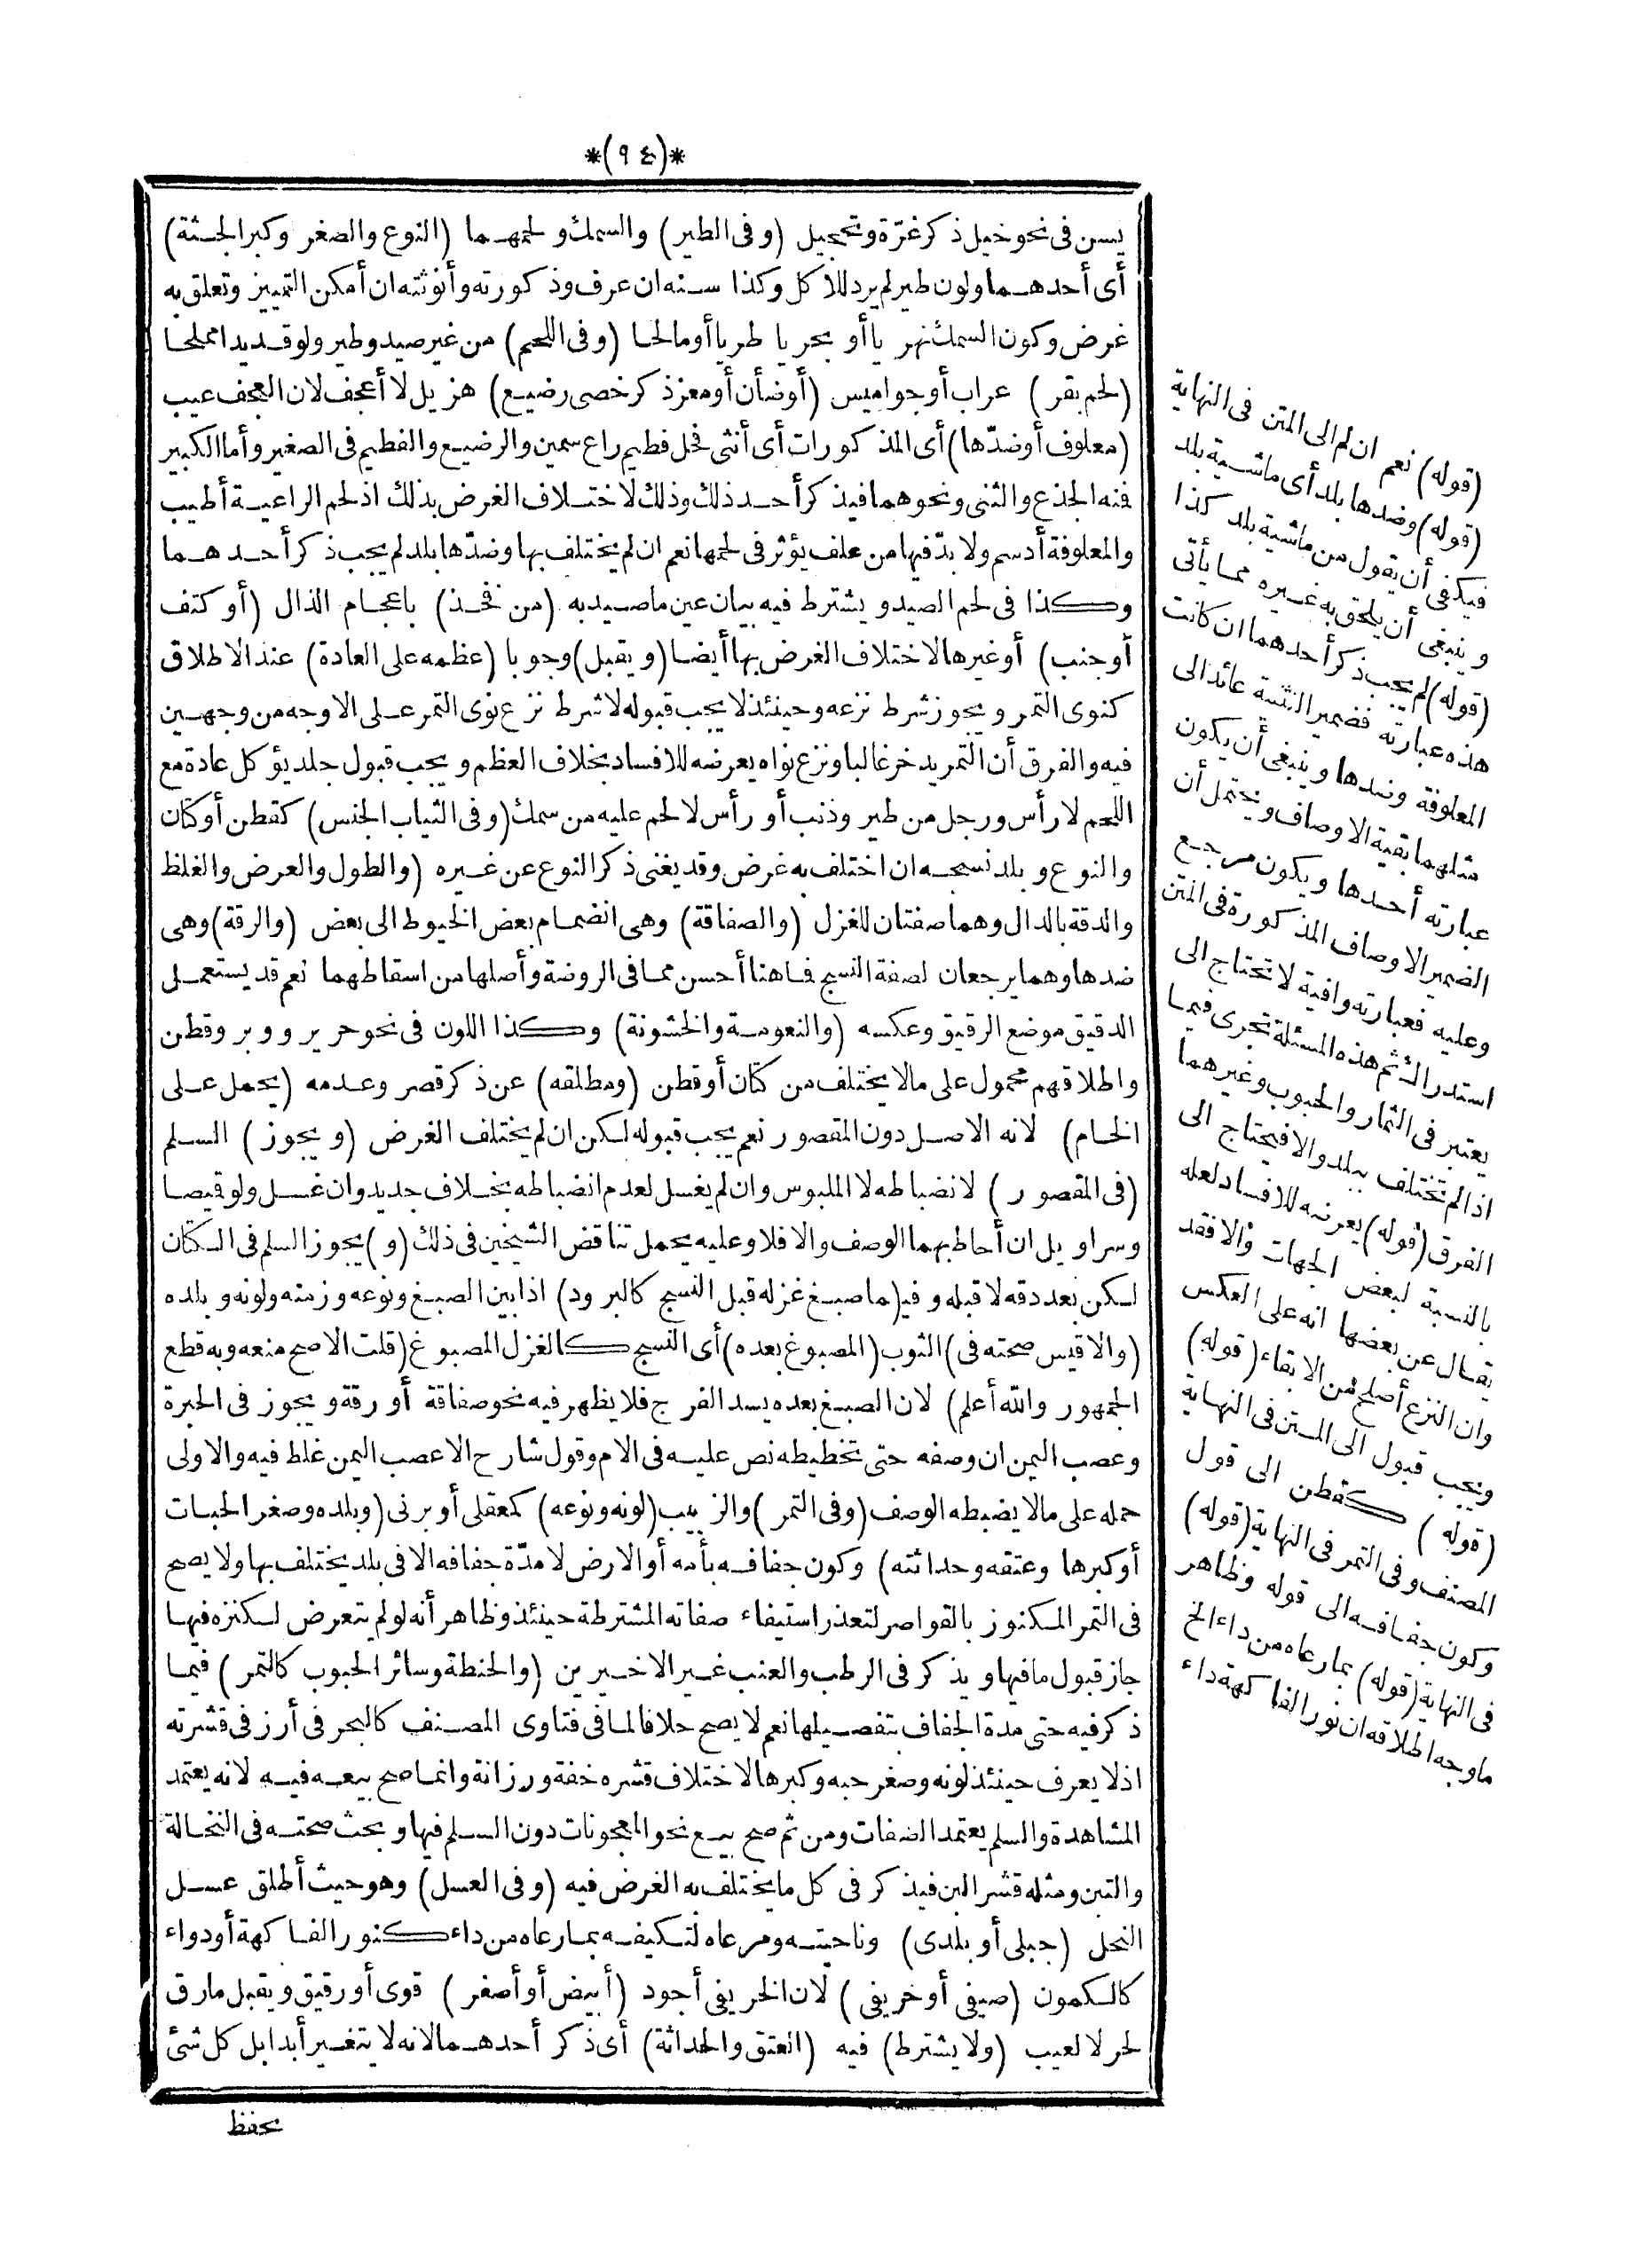 *(٩٤)*
يسن فى نحو خيل ذكر غرّة وتحجيل (وفى الطير) والسمك ولحمهما (النوع والصغر وكبر الجثة)
أى أحدهما ولون طير لم يرد للاكل وكذا سنه ان عرف وذكورته وأنوثته ان أمكن التمييز وتعلق به
غرض وكون السمك نهريا أو بحريا طريا أو مالحا (وفى اللحم) من غير صيد وطير ولو قديدا مملحا
(لحم بقر) عراب أو جواميس (أوضأن أومعز ذكر خصى رضيع) هزيل لا أعجف لان العجف عيب
(معلوف أوضدّها) أى المذكورات أى أنثى فحل فطيم راع سمين والرضيع والفطيم فى الصغير وأما الكبير
فنه الجذع والثنى ونحوهما فيذكر أحد ذلك وذلك لاختلاف الغرض بذلك اذ لحم الراعية أطيب
والمعلوفة أدسم ولا بدّ فيها من علف يؤثر فى لحمها نعم ان لم يختلف بها وضدّها بلد لم يجب ذكر أحدهما
وكذا فى لحم الصيد ويشترط فيه بيان عين ما صيد به (من فخذ) باعجام الذال (أوكتف
أوجنب) أوغيرها لاختلاف الغرض بها أيضا (ويقبل) وجوبا (عظمه على العادة) عند الاطلاق
كنوى التمر ويجوز شرط نزعه وحينئذ لا يجب قبوله لا شرط نزع نوى التمر على الاوجه من وجهين
فيه والفرق أن التمر يدخر غالبا ونزع نواه يعرضه للافساد بخلاف العظم ويجب قبول جلد يؤكل عادة مع
اللحم لا رأس ورجل من طير وذنب أو رأس لا لحم عليه من سمك (وفى الثياب الجنس) كقطن أوكتان
والنوع وبلد نسجه ان اختلف به غرض وقد يغنى ذكر النوع عن غيره (والطول والعرض والغلظ
والدقة بالدال وهما صفتان للغزل (والصفاقة) وهى انضمام بعض الخيوط الى بعض (والرقة) وهى
ضدها وهما يرجعان لصفة النسج فاهنا أحسن مما فى الروضة وأصلها من اسقاطهما نعم قد يستعمل
الدقيق موضع الرقيق وعكسه (والنعومة والخشونة) وكذا اللون فى نحو حرير ووبر وقطن
واطلاقهم محمول على مالا يختلف من كتان أوقطن (ومطلقه) عن ذكر قصر وعدمه (يحمل على
الخام) لانه الاصل دون المقصور نعم يجب قبوله لكن ان لم يختلف الغرض (ويجوز) السلم
(فى المقصور) لانضباطه لا الملبوس وان لم يغسل لعدم انضباطه بخلاف جديد وان غسل ولو قيصا
وسراويل ان أحاط بهما الوصف والا فلا وعليه يحمل تناقض الشيخين فى ذلك (و) يجوز السلم فى الكتان
لكن بعد دقه لا قبله و في(ما صبغ غزله قبل النسج كالبرود) اذا بين الصبغ ونوعه وزمنه ولونه وبلده
(والاقيس صحته فى) الثوب (المصبوغ بعده) أى النسج كالغزل المصبوغ (قلت الاصح منعه وبه قطع
الجمهور والله أعلم) لان الصبغ بعده يسد الفرج فلا يظهر فيه نحو صفاقة أو رقة ويجوز فى الحبرة
وعصب اليمن ان وصفه حتى تخطيطه نص عليه فى الام وقول شارح الاعصب اليمن غلط فيه والاولى
حمله على مالا يضبطه الوصف (وفى التمر) والزبيب (لونه ونوعه) كمعقلى أو برنى (وبلده وصغر الحبات
أوكبرها وعتقه وحداثته) وكون جفافه بأمه أو الارض لا مدّة جفافه الا فى بلد يختلف بها ولا يصح
فى التمر المكنوز بالقواصر لتعذر استيفاء صفاته المشترطة حينئذ وظاهر أنه لو لم يتعرض لكنزه فيها
جاز قبول ما فيها ويذكر فى الرطب والعنب غير الاخيرين (والحنطة وسائر الحبوب كالتمر) فيما
ذكر فيه حتى مدة الجفاف بتفصيلها نعم لا يصح خلافا لما فى فتاوى المصنف كالبحر فى أرز فى قشرته
اذ لا يعرف حينئذ لونه وصغر حبه وكبرها لاختلاف قشره خفة ورزانة وانما صح بيعه فيه لانه يعتمد
المشاهدة والسلم يعتمد الصفات ومن ثم صح بيع نحو المعجونات دون السلم فيها وبحث صحته فى النخالة
والتبن ومثله قشر البن فيذكر فى كل ما يختلف به الغرض فيه (وفى العسل) وهو حيث أطلق عسل
النحل (جبلى أو بلدى) وناحيته ومرعاه لتكيفه بما رعاه من داء كنور الفاكهة أو دواء
كالكمون (صيفى أوخريفى) لان الخريفى أجود (أبيض أوأصفر) قوى أو رقيق ويقبل مارق
لحر لا لعيب (ولا يشترط) فيه (العتق والحداثة) أى ذكر أحدهما لانه لا يتغير أبدا بل كل شئ
يحفظ
(قوله) نعم ان لم الى المتن فى النهاية
(قوله) وضدها بلد أى ماشية بلد
فيكفى أن يقول من ماشية بلد كذا
وينبغى أن يلحق به غيره مما يأتى
(قوله) لم يجب ذكر أحدهما ان كانت
هذه عبارته فضمير التثنية عائد الى
المعلوفة وضدها وينبغى أن يكون
مثلهما بقية الاوصاف ويحتمل أن
عبارته أحدها ويكون مرجع
الضمير الاوصاف المذكورة فى المتن
وعليه فعبارته وافية لا تحتاج الى
استدراك ثم هذه المسئلة تجرى فيما
يعتبر فى الثمار والحبوب وغيرهما
اذا لم تختلف ببلد والا فيحتاج الى
الفرق (قوله) يعرضه للافساد لعله
بالنسبة لبعض الجهات والا فقد
يقال عن بعضها انه على العكس
وان النزع أصلح من الابقاء (قوله)
ويجب قبول الى المتن فى النهاية
(قوله) كقطن الى قول
المصنف وفى التمر فى النهاية (قوله)
وكون جفافه الى قوله وظاهر
فى النهاية (قوله) بما رعاه من داء الخ
ما وجه اطلاقه ان نور الفاكهة داء